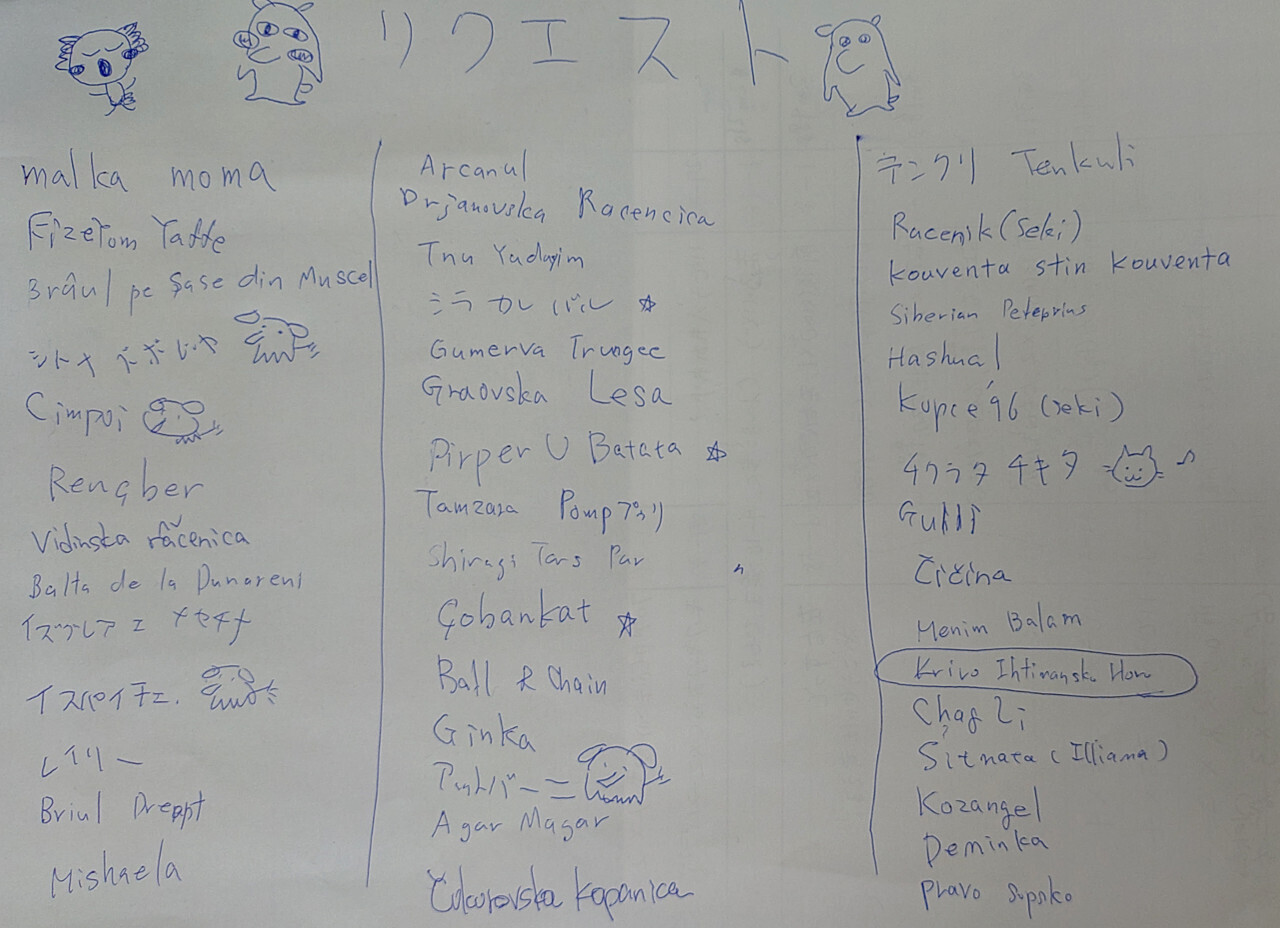 リクエスト
malka moma
Eizetom Yaffe
Brâul pe Şase din Muscel
シトナ ベボ
Cimpoi
Rengber
Vidinska râčenica
Balta de la Dunareni
イズグレア
イスパイチェ.
レイリー
Briul Dreppt
Mishaela
Arcanul
Drjanovska Racencica
Tnu Yadayim
ミラ カレ バル ☆
Gumerva Trungee
Graovska Lesa
Pirper U Batata ☆
Tamzara Pompプリ
Shiragi Tars Par
Çobankat ☆
Ball & Chain
Ginka
アットバーニ
Agar Magar
Kopanica
テンクリ Tenkuli
Racenik (Seki)
kouventa stin kouventa
Siberian
Hashual
Kupce '96 (seki)
チクラタ チキタ ♪
Gulli
Čičina
Menim Balam
Krivo Ihtimansko Horo
Sitnata (Illiana)
Kozangel
Deminka
Pravo Sopsko